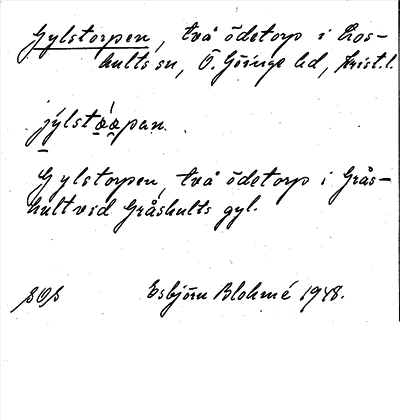 Gylstorpen, två ödetorp i Los-
hults sn, Ö. Göinge hd, Krist. l.
jýlstå̀ǻpan.
Gylstorpen, två ödetorp i Grås-
hult vid Gråshults gyl.
Esbjörn Blohmé 1948.